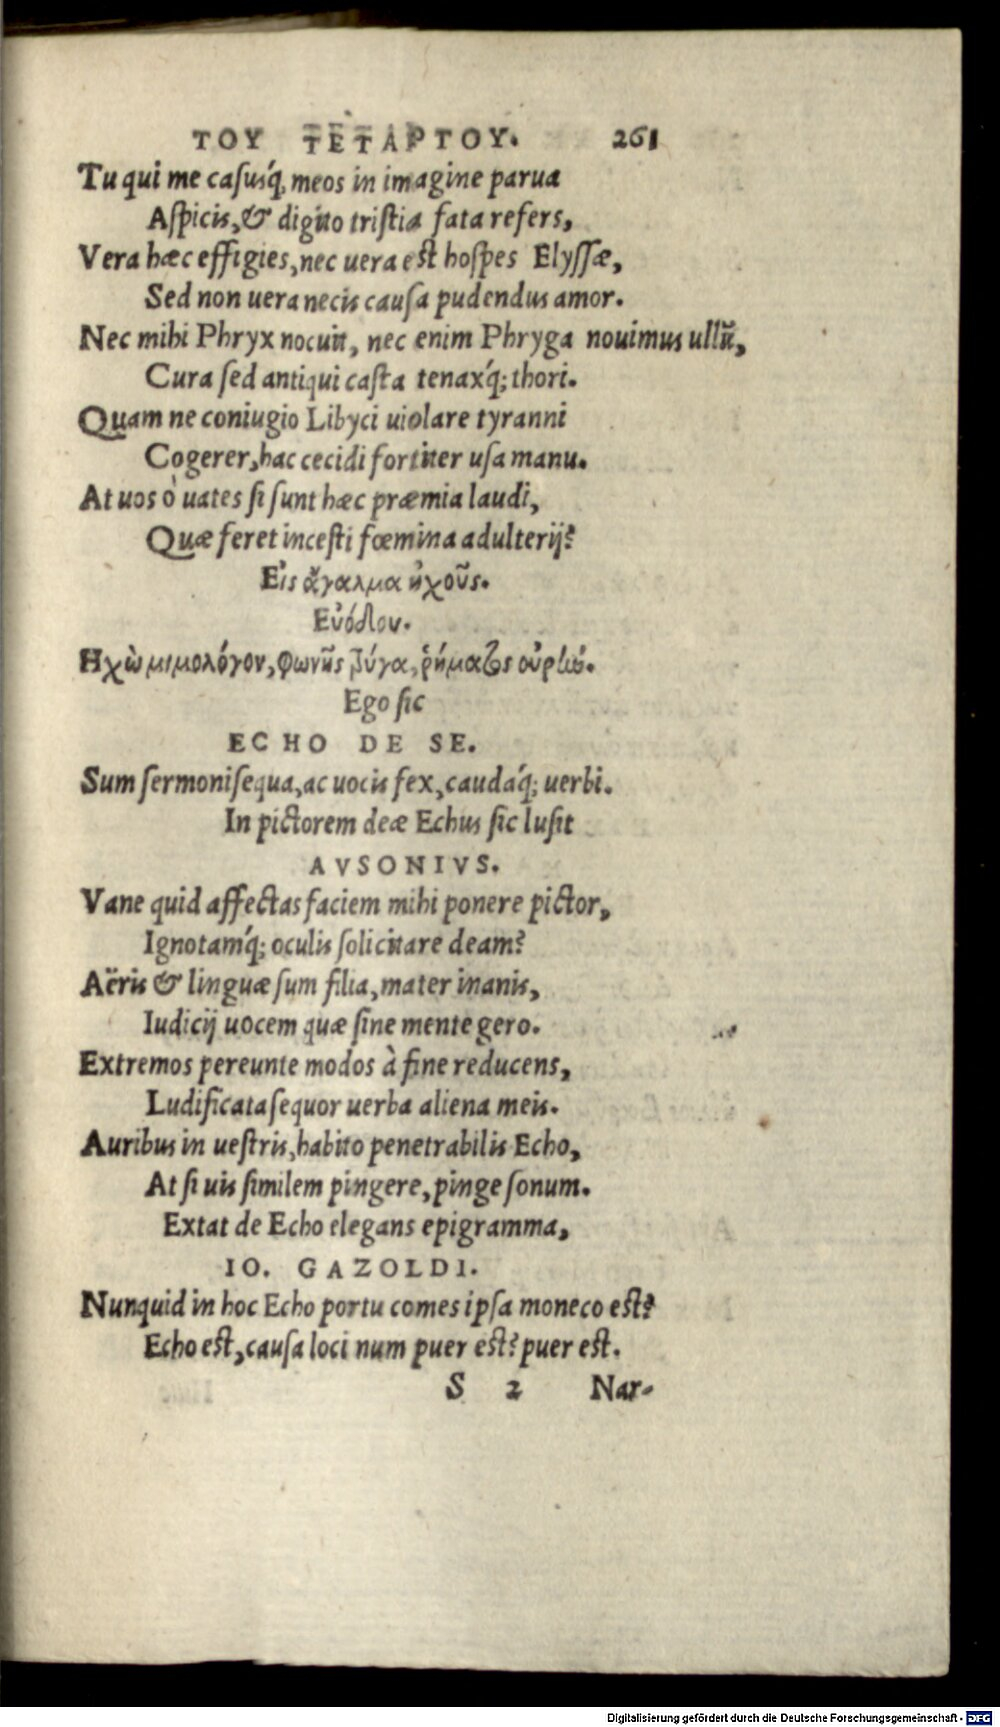 ΤΟΥ ΤΕΤΑΡΤΟΥ. 261
Tu qui me casusq́; meos in imagine parua
Aspicis, & digito tristia fata refers,
Vera hæc effigies, nec uera est hospes Elyssæ,
Sed non uera necis causa pudendus amor.
Nec mihi Phryx nocuit, nec enim Phryga nouimus ullũ,
Cura sed antiqui casta tenaxq́; thori.
Quam ne coniugio Libyci uiolare tyranni
Cogerer, hac cecidi fortiter usa manu.
At uos ò uates si sunt hæc præmia laudi,
Quæ feret incesti fœmina adulterij?
Εἰς ἄγαλμα ἠχοῦς.
Εὐόδου.
Ηχὼ μιμολόγον, φωνῆς τρύγα, ῥήματος οὐρήν.
Ego sic
ECHO DE SE.
Sum sermonisequa, ac uocis fex, caudaq́; uerbi.
In pictorem deæ Echus sic lusit
AVSONIVS.
Vane quid affectas faciem mihi ponere pictor,
Ignotamq́; oculis solicitare deam?
Aëris & linguæ sum filia, mater inanis,
Iudicij uocem quæ sine mente gero.
Extremos pereunte modos à fine reducens,
Ludificata sequor uerba aliena meis.
Auribus in uestris, habito penetrabilis Echo,
At si uis similem pingere, pinge sonum.
Extat de Echo elegans epigramma,
IO. GAZOLDI.
Nunquid in hoc Echo portu comes ipsa moneco est?
Echo est, causa loci num puer est? puer est.
S 2 Nar-
Digitalisierung gefördert durch die Deutsche Forschungsgemeinschaft - DFG